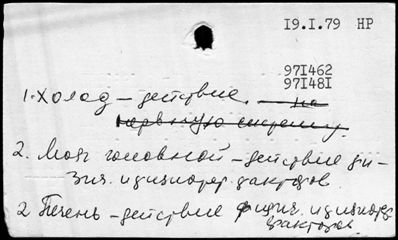 19.I.79 НР
97I462
97I48I
1. Холод – действие. – на
нервную систему.
2. Мозг головной – действие фи-
зич. и физиотер. факторов.
2 Печень – действие физич. и физиотер.
факторов.